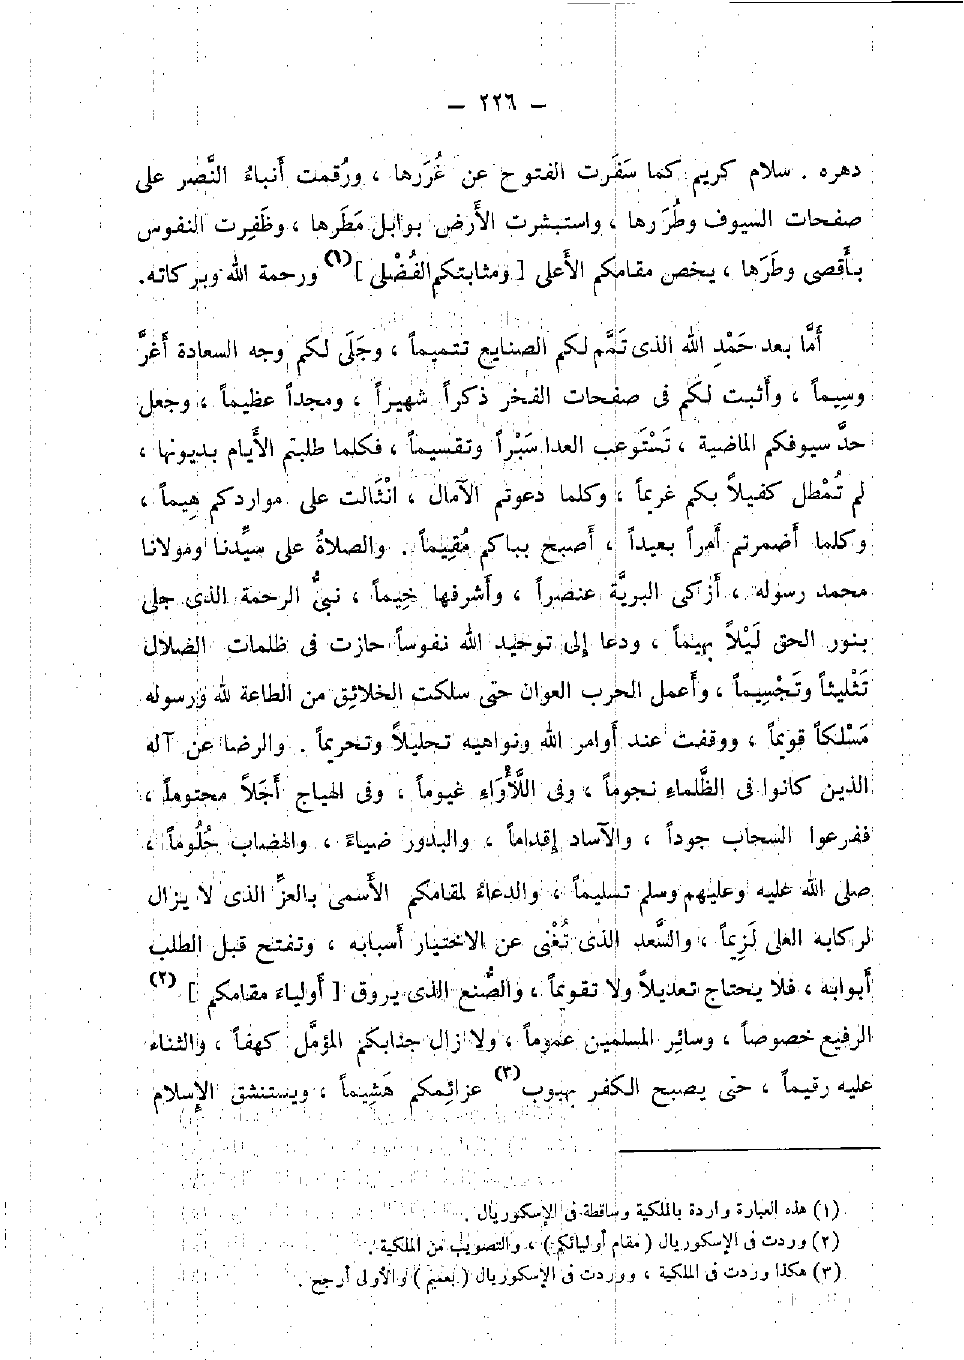 — ٢٢٦ —
دهره . سلام كريم كما سَفَرت الفتوح عن غُرَرها ، ورُقمت أَنباءُ النَّصْر على
صفحات السيوف وطُرَرها ، واستبشرت الأَرض بوابل مَطَرها ، وظَفِرت النفوس
بأَقصى وطَرَها ، يخص مقامكم الأَعلى [ ومثابتكم الفُضْلى ](١) ورحمة الله وبركاته.
أَمَّا بعد حَمْدِ الله الذى تَمَّم لكم الصنايع تتميماً ، وجَلَى لكم وجه السعادة أَغرَّ
وسِيماً ، وأَثبت لكم فى صفحات الفخر ذكراً شهيراً ، ومجداً عظيماً ، وجعل
حدَّ سيوفكم الماضية ، تَسْتَوعب العدا سَبْراً وتقسيماً ، فكلما طلبتم الأَيام بديونها ،
لم تُمْطل كفيلاً بكم غريماً ، وكلما دعوتم الآمال ، انْثَالت على مواردكم هِيماً ،
وكلما أَضمرتم أَمراً بعيداً ، أَصبح ببابكم مُقِيماً . والصلاةُ على سيِّدنا ومولانا
محمد رسوله ، أَزكى البريَّة عنصراً ، وأَشرفها خِيماً ، نبيُّ الرحمة الذى جلى
بنور الحق لَيْلاً بهيماً ، ودعا إلى توحيد الله نفوساً حازت فى ظلمات الضلال
تَثْليثاً وتَجْسِيماً ، وأَعمل الحرب العوان حتى سلكت الخلائق من الطاعة لله ورسوله
مَسْلكاً قويماً ، ووقفت عند أَوامر الله ونواهيه تحليلاً وتحريماً . والرضا عن آله
الذين كانوا فى الظَّلماءِ نجوماً ، وفى اللَّأْوَاءِ غيوماً ، وفى الهياج أَجَلاً محتوماً ،
ففرعوا السحاب جوداً ، والآساد إقداماً ، والبدور ضياءً ، والهضاب حُلُوماً ،
صلى الله عليه وعليهم وسلم تسليماً ، والدعاءُ لمقامكم الأَسمى بالعزِّ الذى لا يزال
لركابه العلى لَزِيماً ، والسَّعد الذى تُغْنى عن الاختيار أَسبابه ، وتفتح قبل الطلب
أَبوابه ، فلا يحتاج تعديلاً ولا تقويماً ، والصُّنع الذى يروق [ أَولياءَ مقامكم ] (٢)
الرفيع خصوصاً ، وسائر المسلمين عموماً ، ولا زال جنابكم المؤمَّل كهفاً ، والثناء
عليه رقيماً ، حتى يصبح الكفر بهبوب(٣) عزائمكم هَشِيماً ، ويستنشق الإسلام
(١) هذه العبارة واردة بالملكية وساقطة فى الإسكوريال .
(٢) وردت فى الإسكوريال (مقام أوليائكم) ، والتصويب من الملكية .
(٣) هكذا وردت فى الملكية ، ووردت فى الإسكوريال (بعميم) والأولى أرجح .